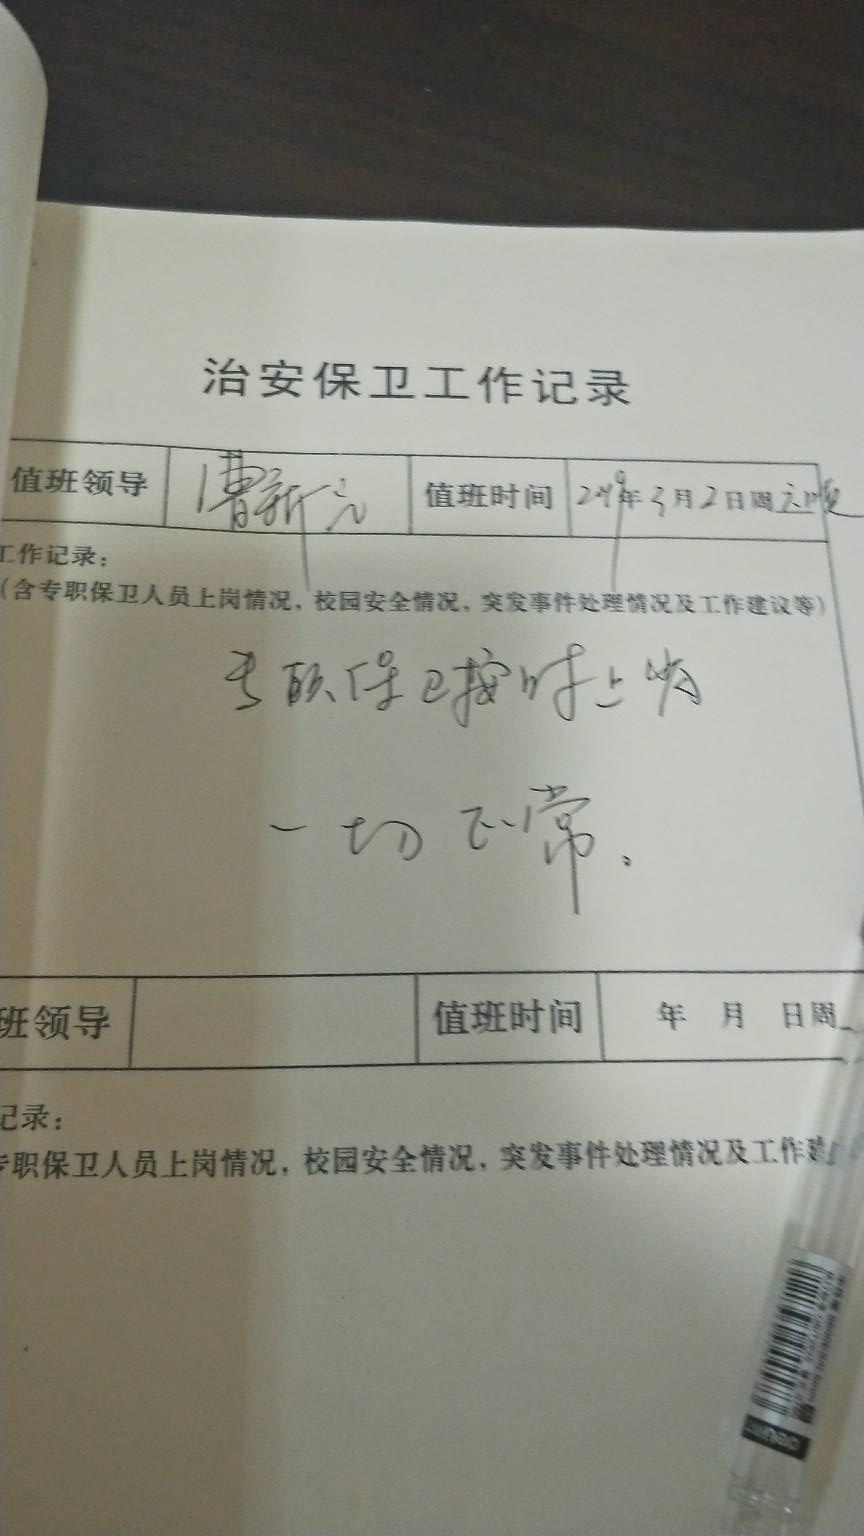 治安保卫工作记录
值班领导 曹新元 值班时间 2019年3月2日周六晚
工作记录：
（含专职保卫人员上岗情况，校园安全情况，突发事件处理情况及工作建议等）
专职保卫按时上岗
一切正常.
班领导 值班时间 年 月 日周
记录：
专职保卫人员上岗情况，校园安全情况，突发事件处理情况及工作建
deli